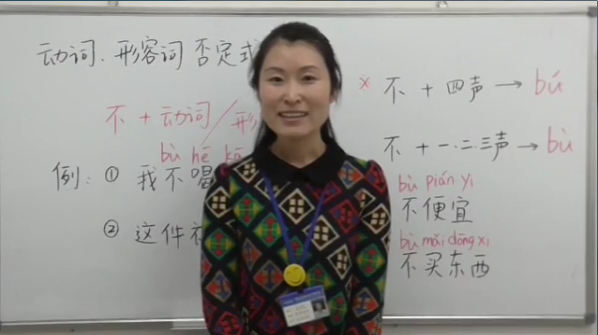 动词、形容词 否定式
不 + 动词/形
bù hē kā
例：① 我不喝
② 这件衣
× 不 + 四声 → bú
不 + 一.二.三声 → bù
bù pián yi
不便宜
bù mǎi dōng xi
不买东西